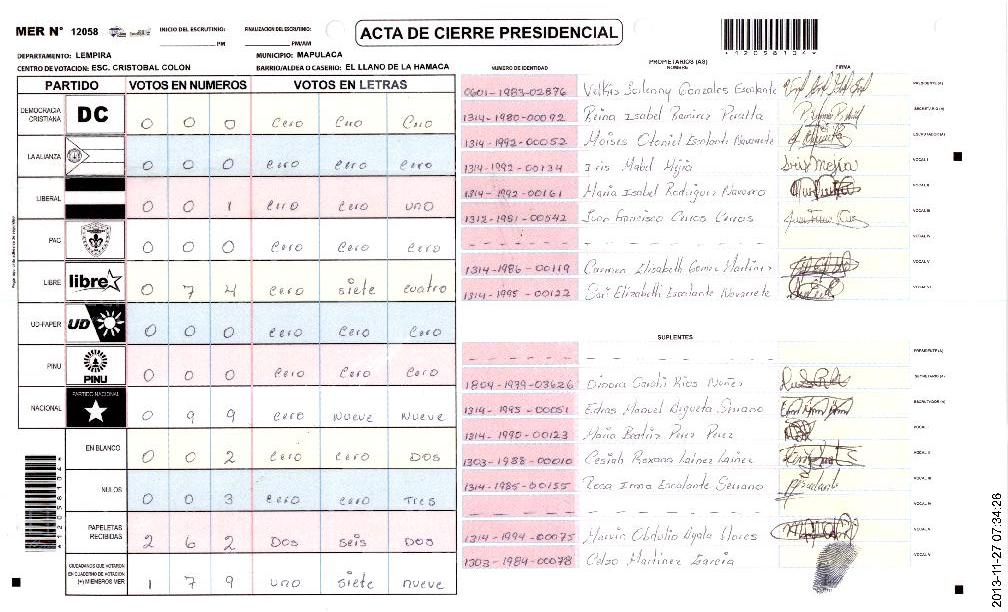 MER Nº 12058 INICIO DEL ESCRUTINIO: PM FINALIZACION DEL ESCRUTINIO: PM/AM ACTA DE CIERRE PRESIDENCIAL
*12058134*
DEPARTAMENTO: LEMPIRA MUNICIPIO: MAPULACA
CENTRO DE VOTACION: ESC. CRISTOBAL COLON BARRIO/ALDEA O CASERIO: EL LLANO DE LA HAMACA
PARTIDO VOTOS EN NUMEROS VOTOS EN LETRAS
DEMOCRACIA CRISTIANA DC 0 0 0 Cero Cero Cero
LA ALIANZA 0 0 0 Cero Cero Cero
LIBERAL 0 0 1 Cero Cero uno
PAC 0 0 0 Cero Cero Cero
LIBRE libre 0 7 4 Cero siete cuatro
UD-FAPER UD 0 0 0 Cero Cero Cero
PINU PINU 0 0 0 Cero Cero Cero
NACIONAL PARTIDO NACIONAL 0 9 9 Cero Nueve Nueve
EN BLANCO 0 0 2 Cero Cero Dos
NULOS 0 0 3 Cero Cero Tres
PAPELETAS RECIBIDAS 2 6 2 Dos seis Dos
CIUDADANOS QUE VOTARON EN CUADERNO DE VOTACION (+) MIEMBROS MER 1 7 9 uno siete nueve
PROPIETARIOS (AS)
NUMERO DE IDENTIDAD NOMBRE FIRMA
0601-1983-02876 Gonzales Escalante PRESIDENTE(A)
1314-1980-00092 Reina Isabel Ramirez Peralta SECRETARIO(A)
1314-1992-00052 Moises Otoniel Escalante Navarrete ESCRUTADOR(A)
1314-1992-00134 Iris Mabel Mejia Iris Mejia VOCAL I
1314-1992-00161 Maria Isabel Rodriguez Navarro VOCAL II
1312-1981-00542 Juan Francisco VOCAL III
VOCAL IV
1314-1986-00119 Carmen Elisabeth Gomez Martinez VOCAL V
1314-1995-00122 Elizabeth Escalante Navarrete
SUPLENTES
PRESIDENTE(A)
1804-1979-03626 Rios Nuñez SECRETARIO(A)
1314-1995-00051 Manuel Argueta Serrano ESCRUTADOR(A)
1314-1990-00123 Maria Beatriz Perez Perez VOCAL I
1303-1988-00010 Cesiah Roxana Lainez Lainez VOCAL II
1314-1985-00155 Rosa Irma Escalante Serrano VOCAL III
VOCAL IV
1314-1994-00075 Marvin Obdulio Ayala Flores VOCAL V
1303-1984-00078 Celso Martinez Garcia
2013-11-27 07:34:26